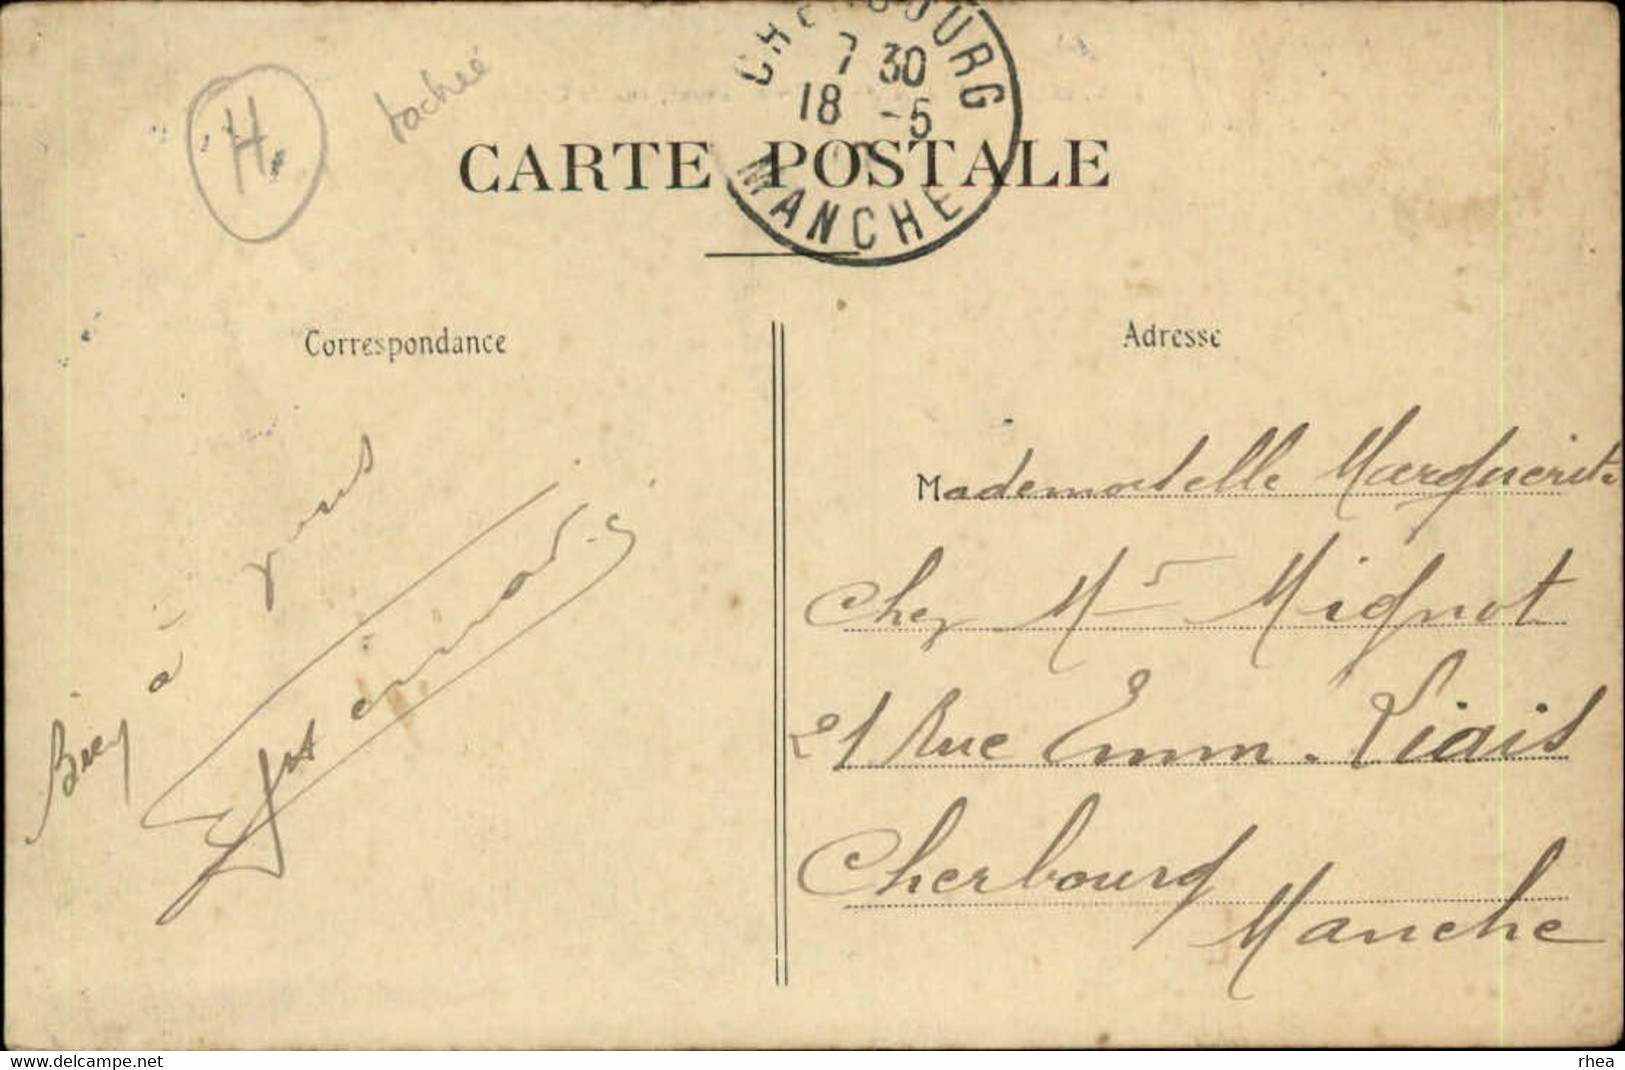 H.
tachée
CHERBOURG
7 30
18 -5
MANCHE
CARTE POSTALE
Correspondance
Adresse
Bien à vous
Mademoiselle Marguerite
Chez Mr Mignot
21 Rue Emm. Liais
Cherbourg
Manche
delcampe.net
rhea